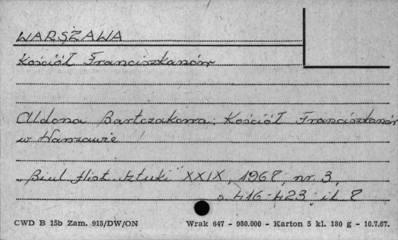 WARSZAWA
Kościół Franciszkanów
Aldona Bartczakowa: Kościół Franciszkanów
w Warszawie
Biul. Hist. Sztuki XXIX, 1967, nr. 3,
s. 416-423, il. 8
CWD B 15b Zam. 915/DW/ON Wrak 647 - 980.000 - Karton 5 kl. 180 g - 10.7.67.